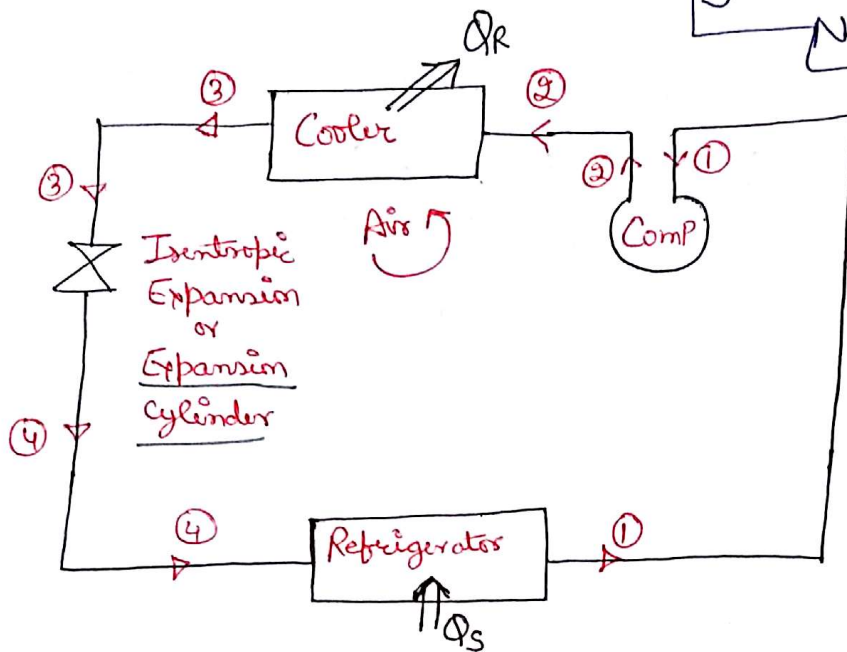 QR
N
③
Cooler
②
③
②
①
Isentropic
Expansion
or
Expansion
Cylinder
Air
Comp
④
④
Refrigerator
①
QS